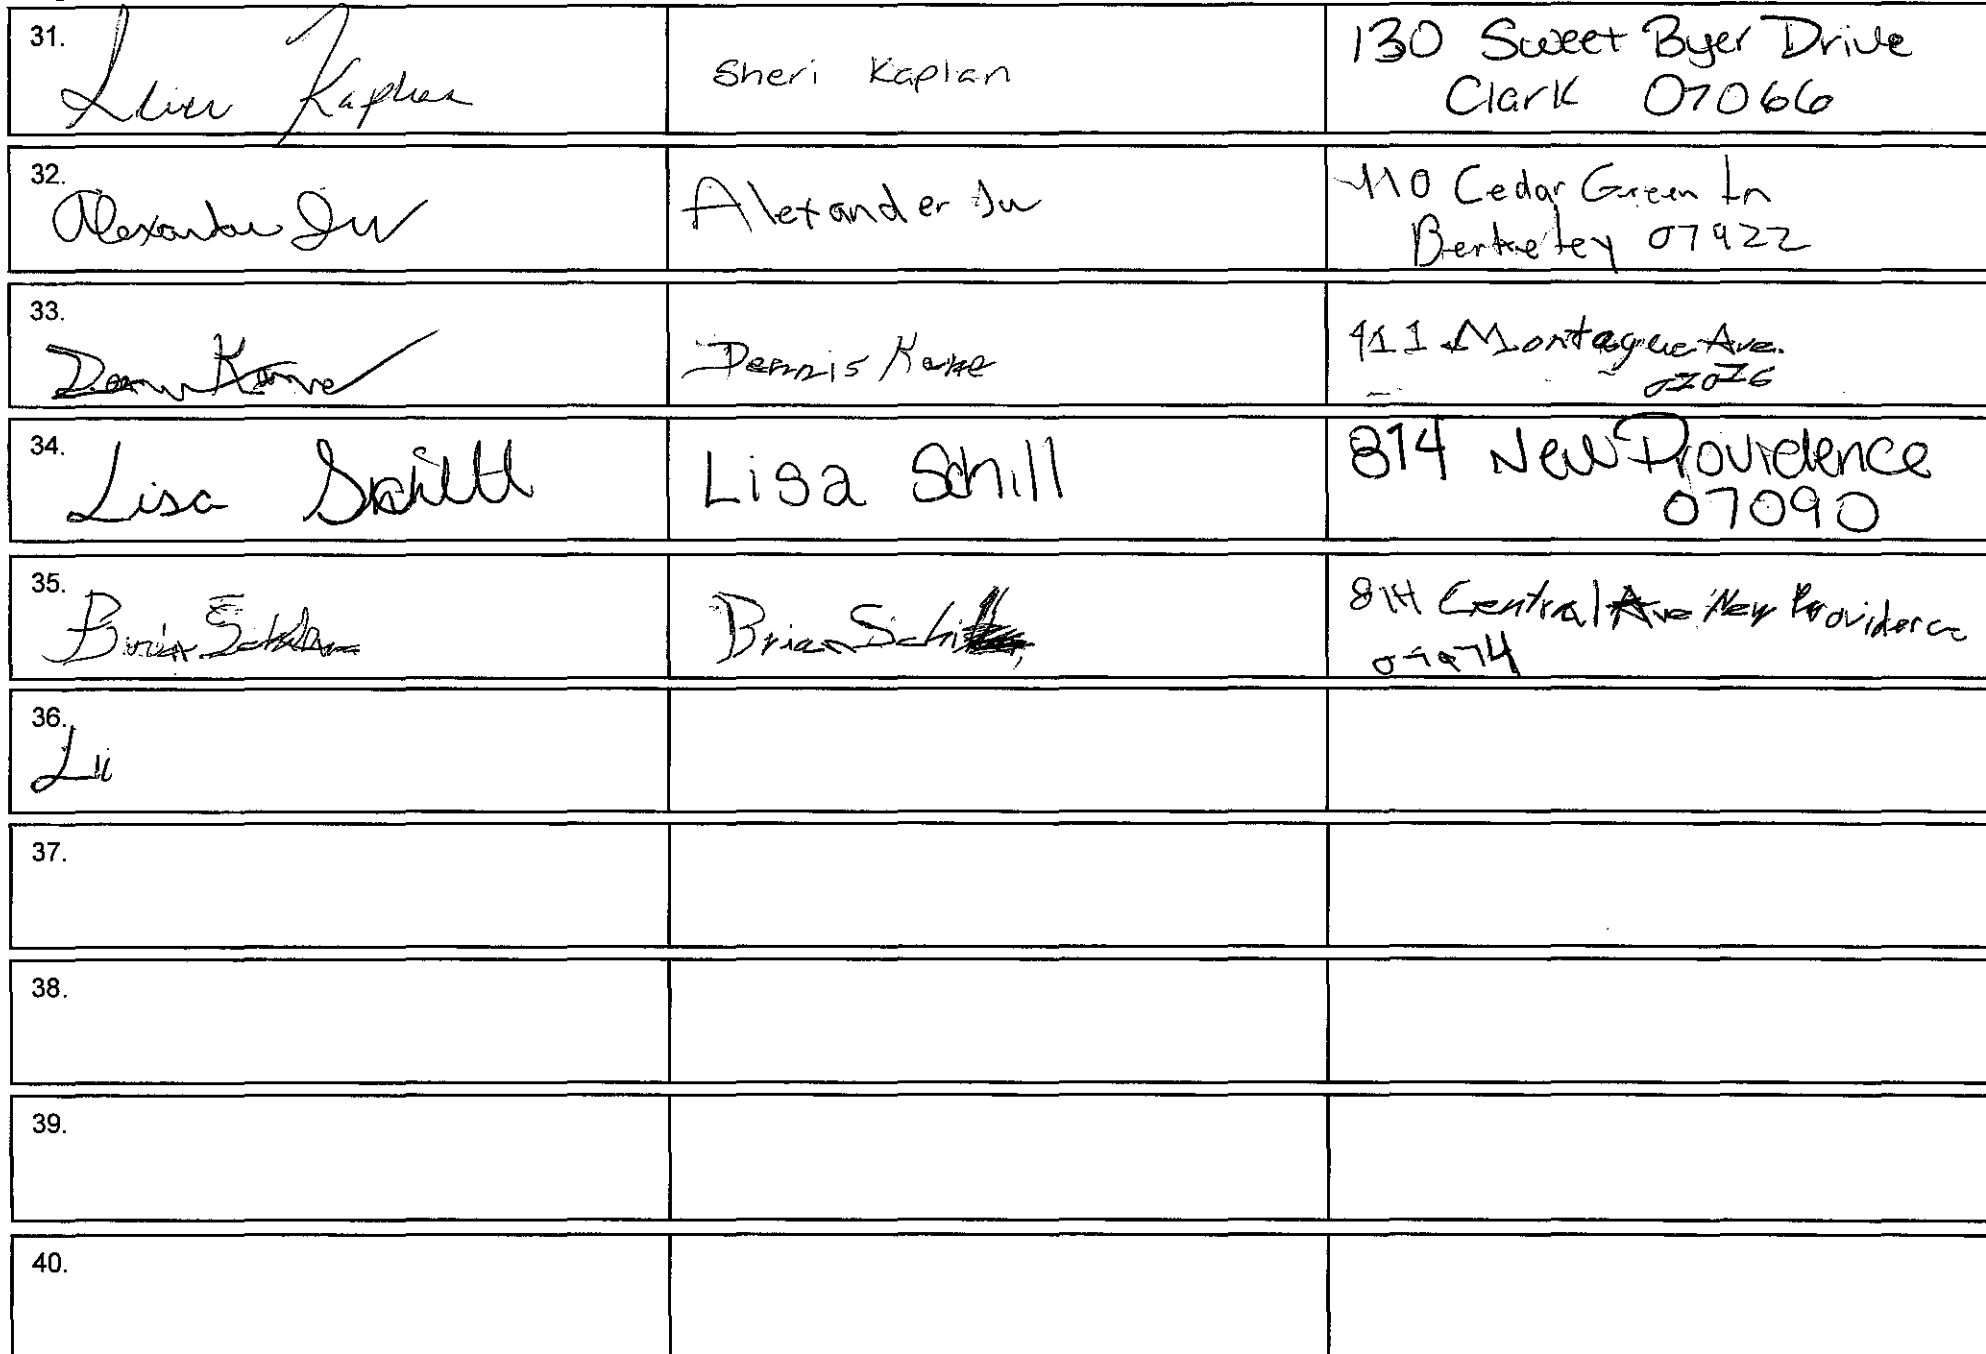 31.
Kaplan
Sheri Kaplan
130 Sweet Byer Drive
Clark 07066
32.
Alexander
Alexander
110 Cedar Green Ln
Berkeley 07922
33.
Kane
Dennis Kane
911 Montague Ave.
34.
Lisa Schill
Lisa Schill
814 New Providence
07090
35.
Brian
Brian
814 Central Ave New Providence
07974
36.
37.
38.
39.
40.